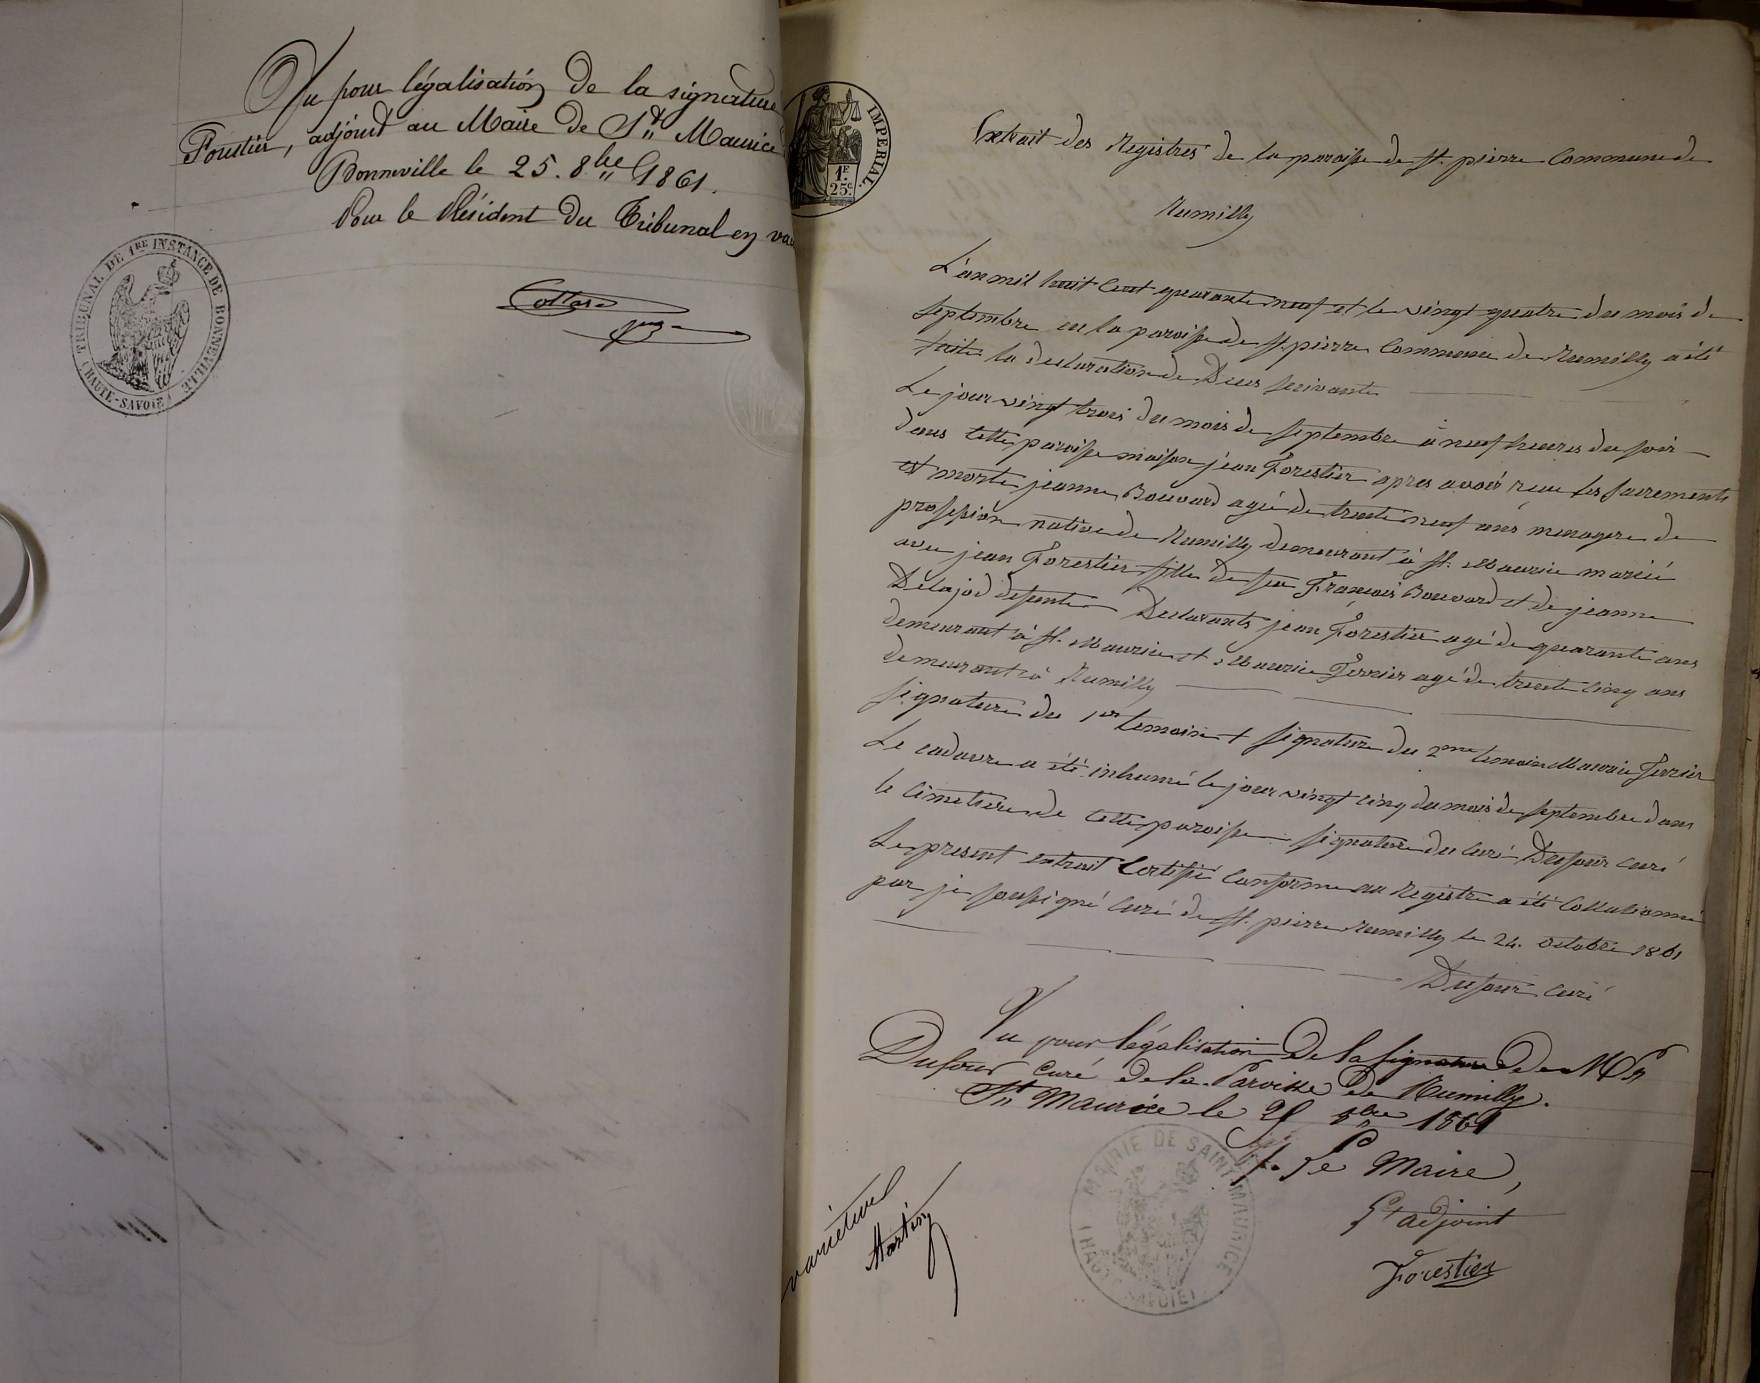 Vu pour légalisation de la signature
Forestier, adjoint au Maire de St Maurice
Bonneville le 25. 8bre 1861.
Pour le Président du Tribunal en
TRIBUNAL DE 1RE INSTANCE DE BONNEVILLE
(HAUTE-SAVOIE)
Collas
juge
IMPERIAL.
1F.
25c.
Extrait des Registres de la paroisse de St. pierre Commune de
Rumilly
L'an mil huit Cent quarante neuf et le vingt quatre du mois de
Septembre en la paroisse de St. pierre Commune de Rumilly a été
faite la declaration de Deces suivante
Le jour vingt trois du mois de Septembre à neuf heures du soir
dans cette paroisse maison jean Forestier apres avoir recu les sacrements
est morte jeanne Bouvard agé de trente neuf ans menagere de
profession native de Rumilly demeurant à St. Maurice marié
avec jean Forestier fille de feu François Bouvard et de jeanne
Delajod defunte Declarants jean Forestier agé de quarante ans
demeurant à St. Maurice et Maurice Ferrier agé de trente cinq ans
demeurant à Rumilly
signature du 1er temoin + signature du 2me temoin Maurice Ferrier
Le cadavre a été inhumé le jour vingt cinq du mois de Septembre dans
le cimetiere de cette paroisse signature du Curé Dufour curé
Le present extrait Certifié Conforme au Registre a été Collationné
par je soussigné Curé de St. pierre Rumilly le 24. octobre 1861
Dufour curé
Vu pour légalisation De la Signature De M
Dufour Curé de la Paroisse De Rumilly.
St Maurice le 25 8bre 1861
Pr Le Maire,
L'adjoint
Forestier
MAIRIE DE SAINT MAURICE
(HAUTE SAVOIE)
varietur
Martin